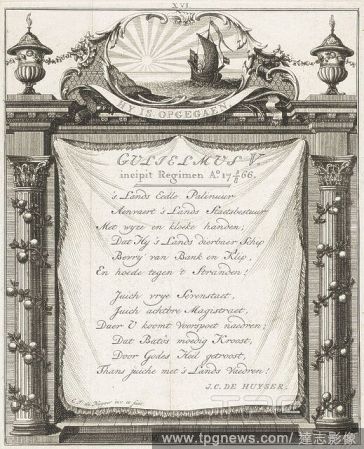 XVI
HY IS OPGEGAEN.
GULIELMUS V.
incipit Regimen Aº. 17 8/3 66.
's Lands Eedle Palinuur
Aenvaert 's Lands Staetsbestuur
Met wyze en kloeke handen;
Dat Hy 's Lands dierbaer Schip
Bevry van Bank en Klip,
En hoede tegen 't Stranden!
Juich vrye Sevenstaet,
Juich achtbre Magistraet,
Daer U koomt Voorspoet naedren;
Dat Batôs moedig Kroost,
Door Godes Heil getroost,
Thans juiche met 's Lands Vaedren!
J.C. DE HUYSER.
www.tpgnews.com / 達志影像